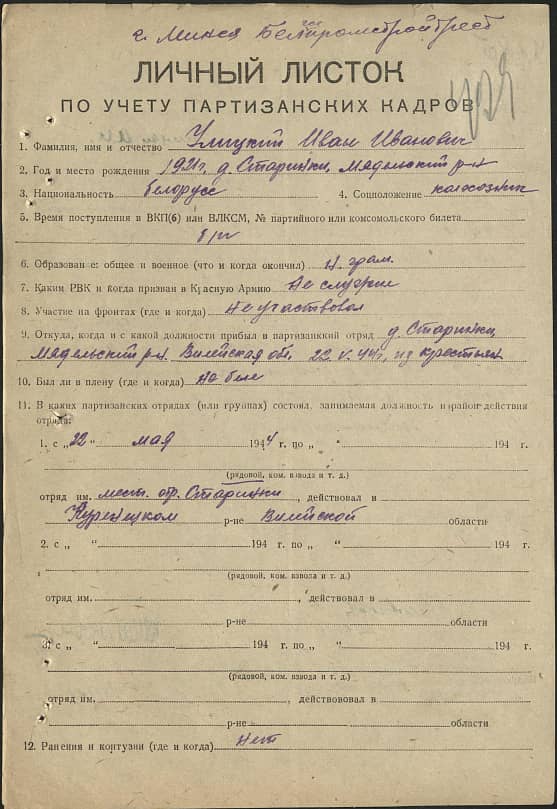 г. Минск Белпромстройтрест
ЛИЧНЫЙ ЛИСТОК
ПО УЧЕТУ ПАРТИЗАНСКИХ КАДРОВ
1. Фамилия, имя и отчество Улицкий Иван Иванович
2. Год и место рождения 1921 г. д. Старинки, Мядельский р-н
3. Национальность белорусс 4. Соцположение колхозник
5. Время поступления в ВКП(б) или ВЛКСМ, № партийного или комсомольского билета
б/п
6. Образование: общее и военное (что и когда окончил) н. грам.
7. Каким РВК и когда призван в Красную Армию не служил
8. Участие на фронтах (где и когда) не участвовал
9. Откуда, когда и с какой должности прибыл в партизанкий отряд д. Старинки,
Мядельский р-н. Вилейская обл. 22.V.44г. из крестьян
10. Был ли в плену (где и когда) не был
11. В каких партизанских отрядах (или группах) состоял, занимаемая должность и район действия
отряда:
1. с „22" мая 1944 г. по „ " 194 г.
(рядовой, ком. взвода и т. д.)
отряд им. мест. отр. Старинки, действовал в
Куренецком р-не Вилейской области
2. с „ " 194 г. по „ " 194 г.
(рядовой, ком. взвода и т. д.)
отряд им. , действовал в
р-не области
3. с „ " 194 г. по „ " 194 г.
(рядовой, ком. взвода и т. д.)
отряд им. действовал в
р-не области
12. Ранения и контузии (где и когда) нет